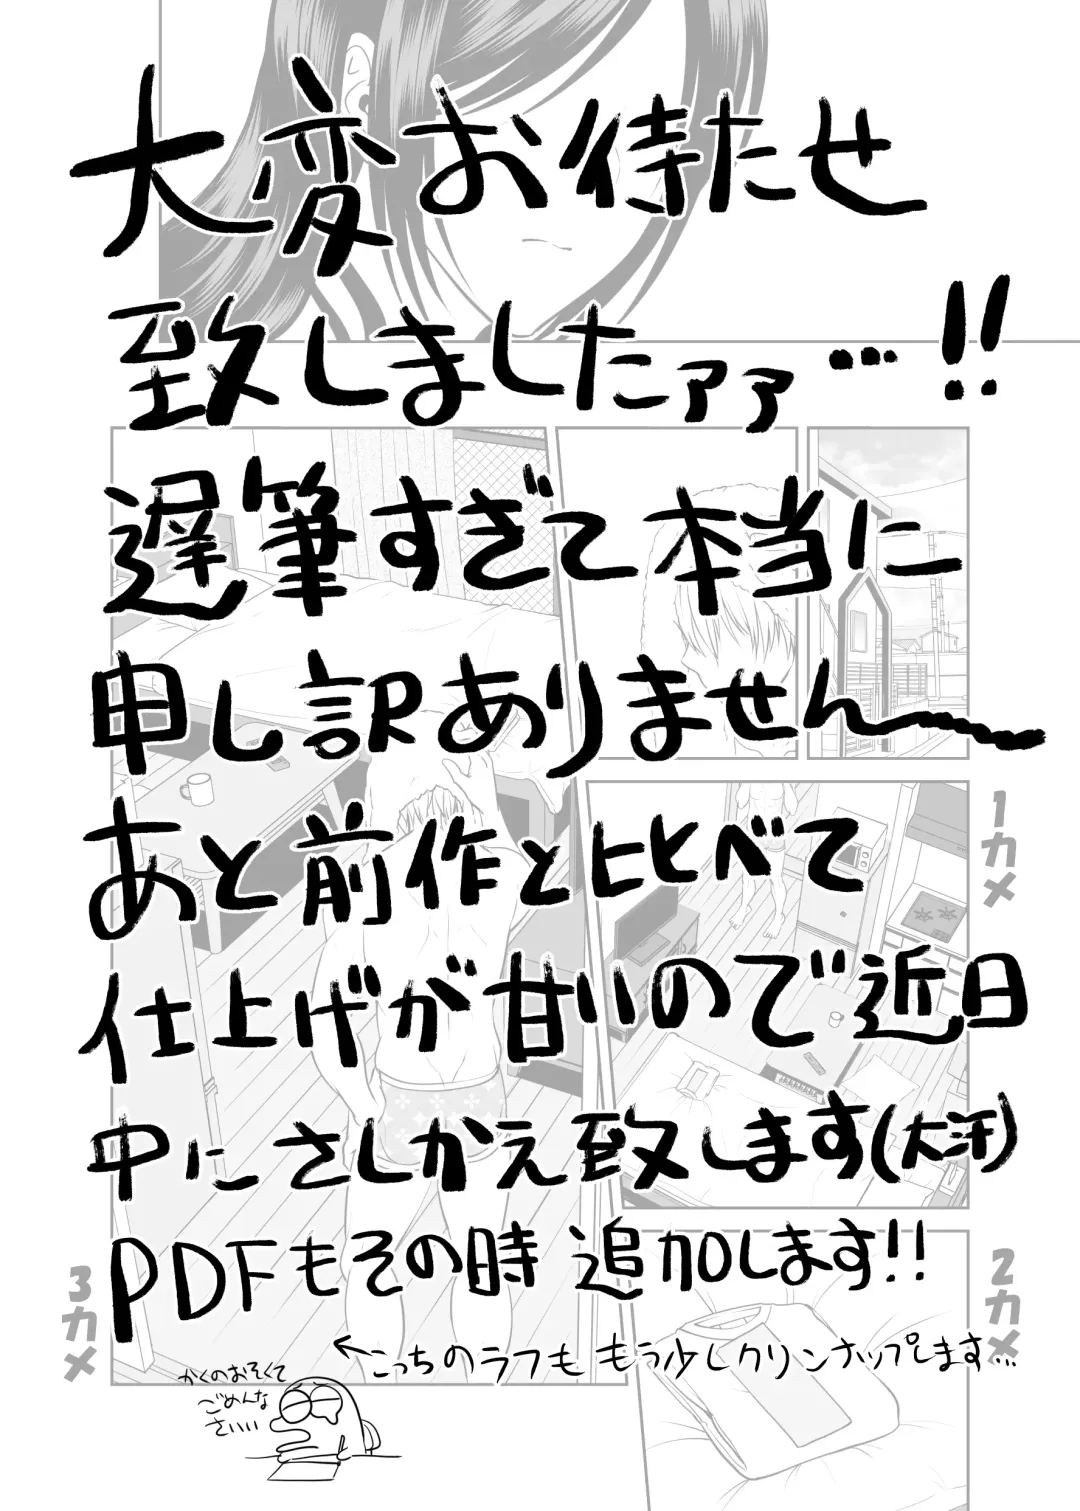 大変お待たせ
致しましたァァ…!!
遅筆すぎて本当に
申し訳ありません〜
あと前作と比べて
仕上げが甘いので近日
中にさしかえ致します(大汗)
PDFもその時追加します!!
←こっちのラフももう少しクリンナップします…
かくのおそくて
ごめんな
さいぃ
1カメ
2カメ
3カメ